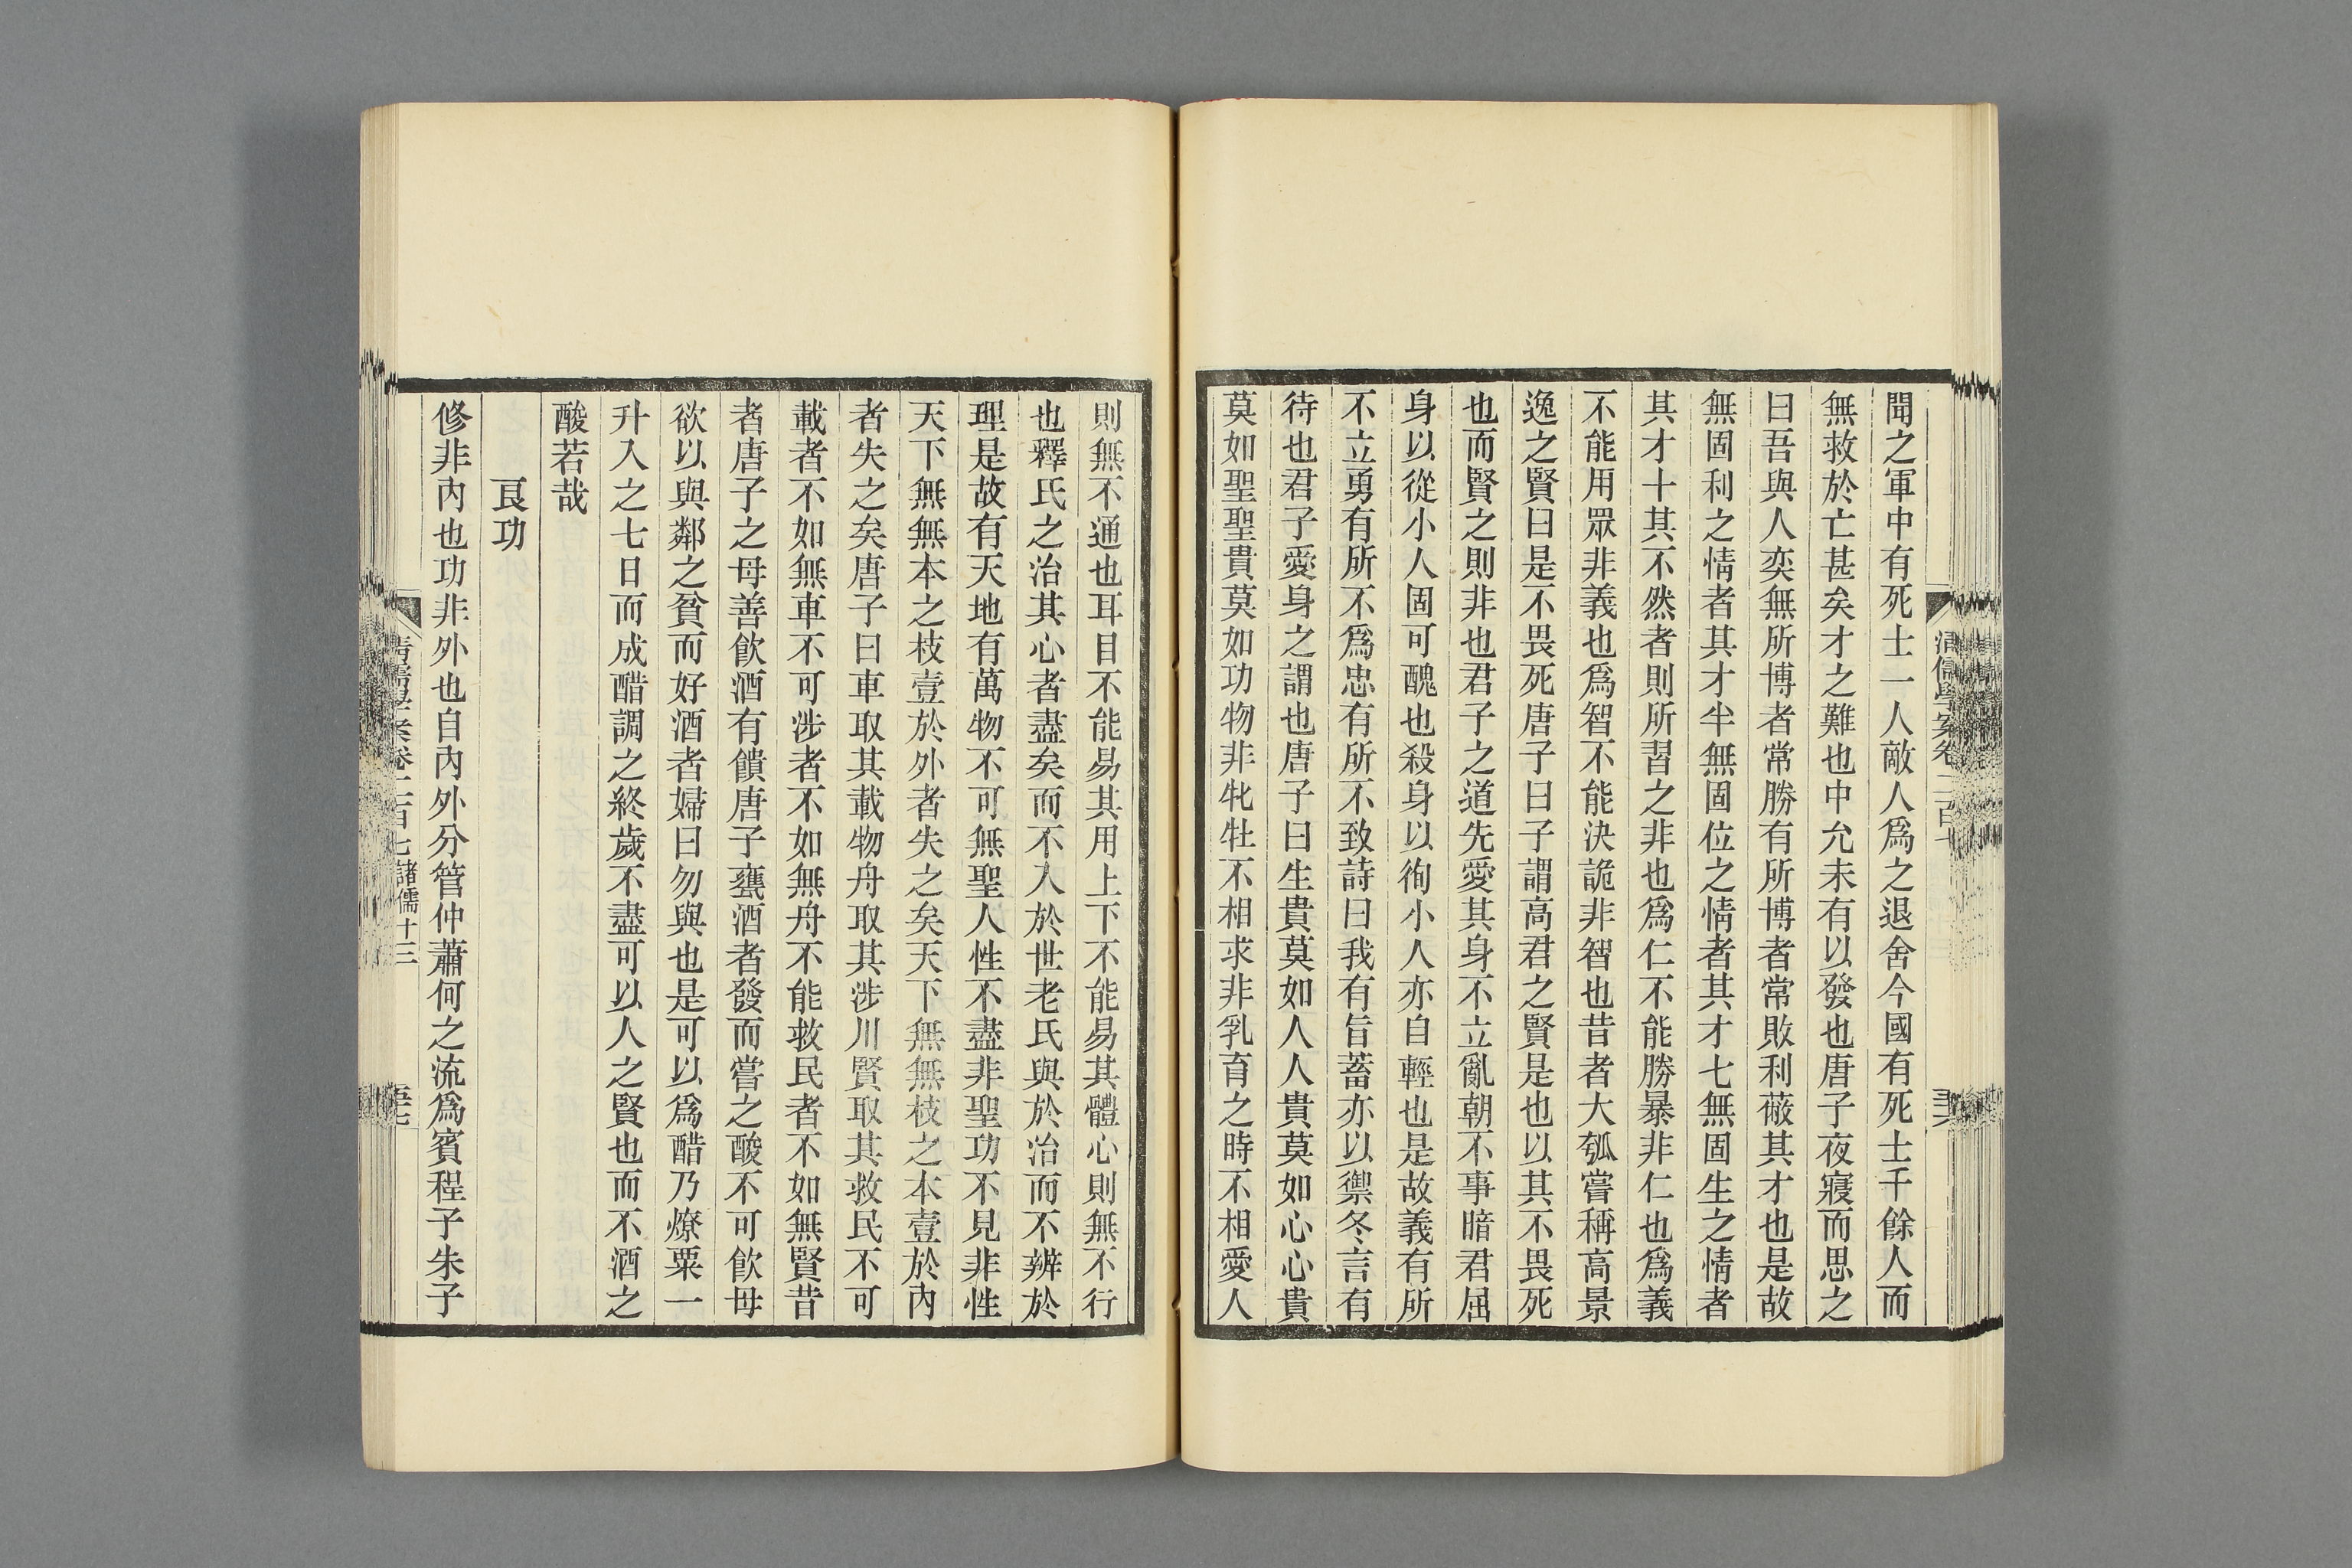 聞之軍中有死士一人敵人爲之退舍今國有死士千餘人而
無救於亡甚矣才之難也中允未有以發也唐子夜寢而思之
曰吾與人奕無所博者常勝有所博者常敗利蔽其才也是故
無固利之情者其才半無固位之情者其才七無固生之情者
其才十其不然者則所習之非也爲仁不能勝暴非仁也爲義
不能用眾非義也爲智不能決詭非智也昔者大瓠嘗稱高景
逸之賢曰是不畏死唐子曰子謂高君之賢是也以其不畏死
也而賢之則非也君子之道先愛其身不立亂朝不事暗君屈
身以從小人固可醜也殺身以徇小人亦自輕也是故義有所
不立勇有所不爲忠有所不致詩曰我有旨蓄亦以禦冬言有
待也君子愛身之謂也唐子曰生貴莫如人人貴莫如心心貴
莫如聖聖貴莫如功物非牝牡不相求非乳育之時不相愛人
則無不通也耳目不能易其用上下不能易其體心則無不行
也釋氏之治其心者盡矣而不入於世老氏與於治而不辨於
理是故有天地有萬物不可無聖人性不盡非聖功不見非性
天下無無本之枝壹於外者失之矣天下無無枝之本壹於內
者失之矣唐子曰車取其載物舟取其涉川賢取其救民不可
載者不如無車不可涉者不如無舟不能救民者不如無賢昔
者唐子之母善飮酒有饋唐子甕酒者發而嘗之酸不可飮母
欲以與鄰之貧而好酒者婦曰勿與也是可以爲醋乃燎粟一
升入之七日而成醋調之終歲不盡可以人之賢也而不酒之
酸若哉
良功
修非內也功非外也自內外分管仲蕭何之流爲賓程子朱子
清儒學案卷二百七 諸儒十三